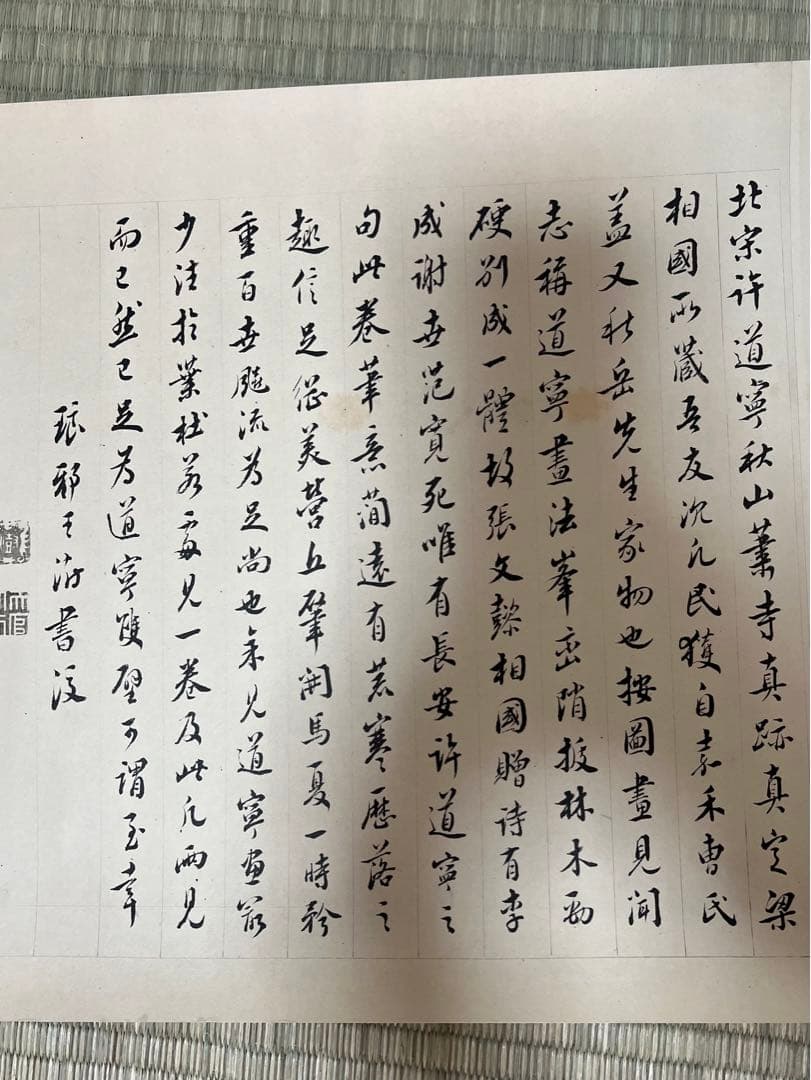 北宋许道寧秋山蕭寺真跡真定梁
相國所藏吾友沈凡民獲自嘉禾曹氏
盖又秋岳先生家物也按圖畫見聞
志稱道寧畫法峯巒陗拔林木勁
硬别成一體故張文懿相國贈诗有李
成谢世范寬死唯有長安許道寧之
句此卷筆意蕳遠有荒寒歷落之
趣信足俪美營丘肇開馬夏一時矜
重百世飚流为足尚也余見道寧画最
少注於葉杜君處见一卷及此凡两見
而已然已足为道寧雙璧可謂至幸
琅邪王澍書後